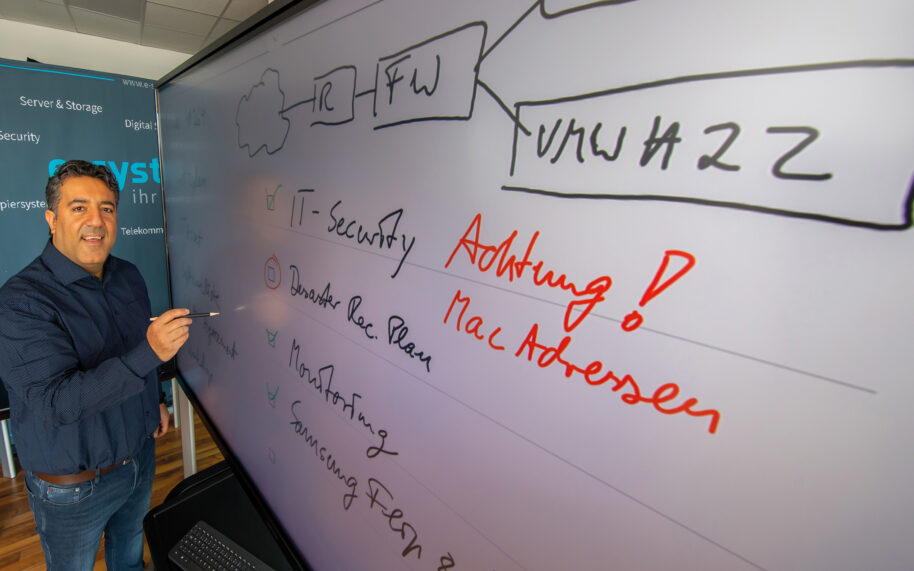 www.e-s
Server & Storage
Digital S
Security
e-syst
ihr
piersysteme
Telekomm
R
FW
VMW #22
IT-Security
Achtung!
Disaster Rec. Plan
Mac Adressen
Monitoring
Samsung Flip